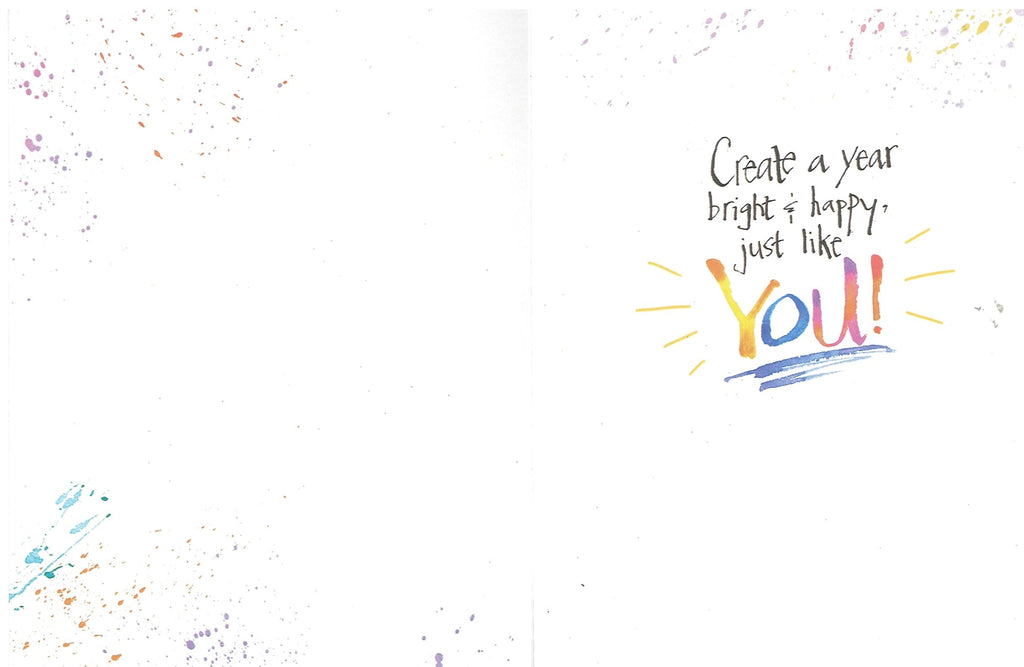 Create a year
bright & happy,
just like
YOU!